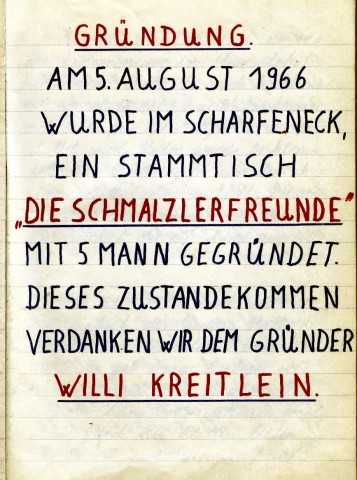 GRÜNDUNG.
AM 5. AUGUST 1966
WURDE IM SCHARFENECK,
EIN STAMMTISCH
„DIE SCHMALZLERFREUNDE"
MIT 5 MANN GEGRÜNDET.
DIESES ZUSTANDEKOMMEN
VERDANKEN WIR DEM GRÜNDER
WILLI KREITLEIN.